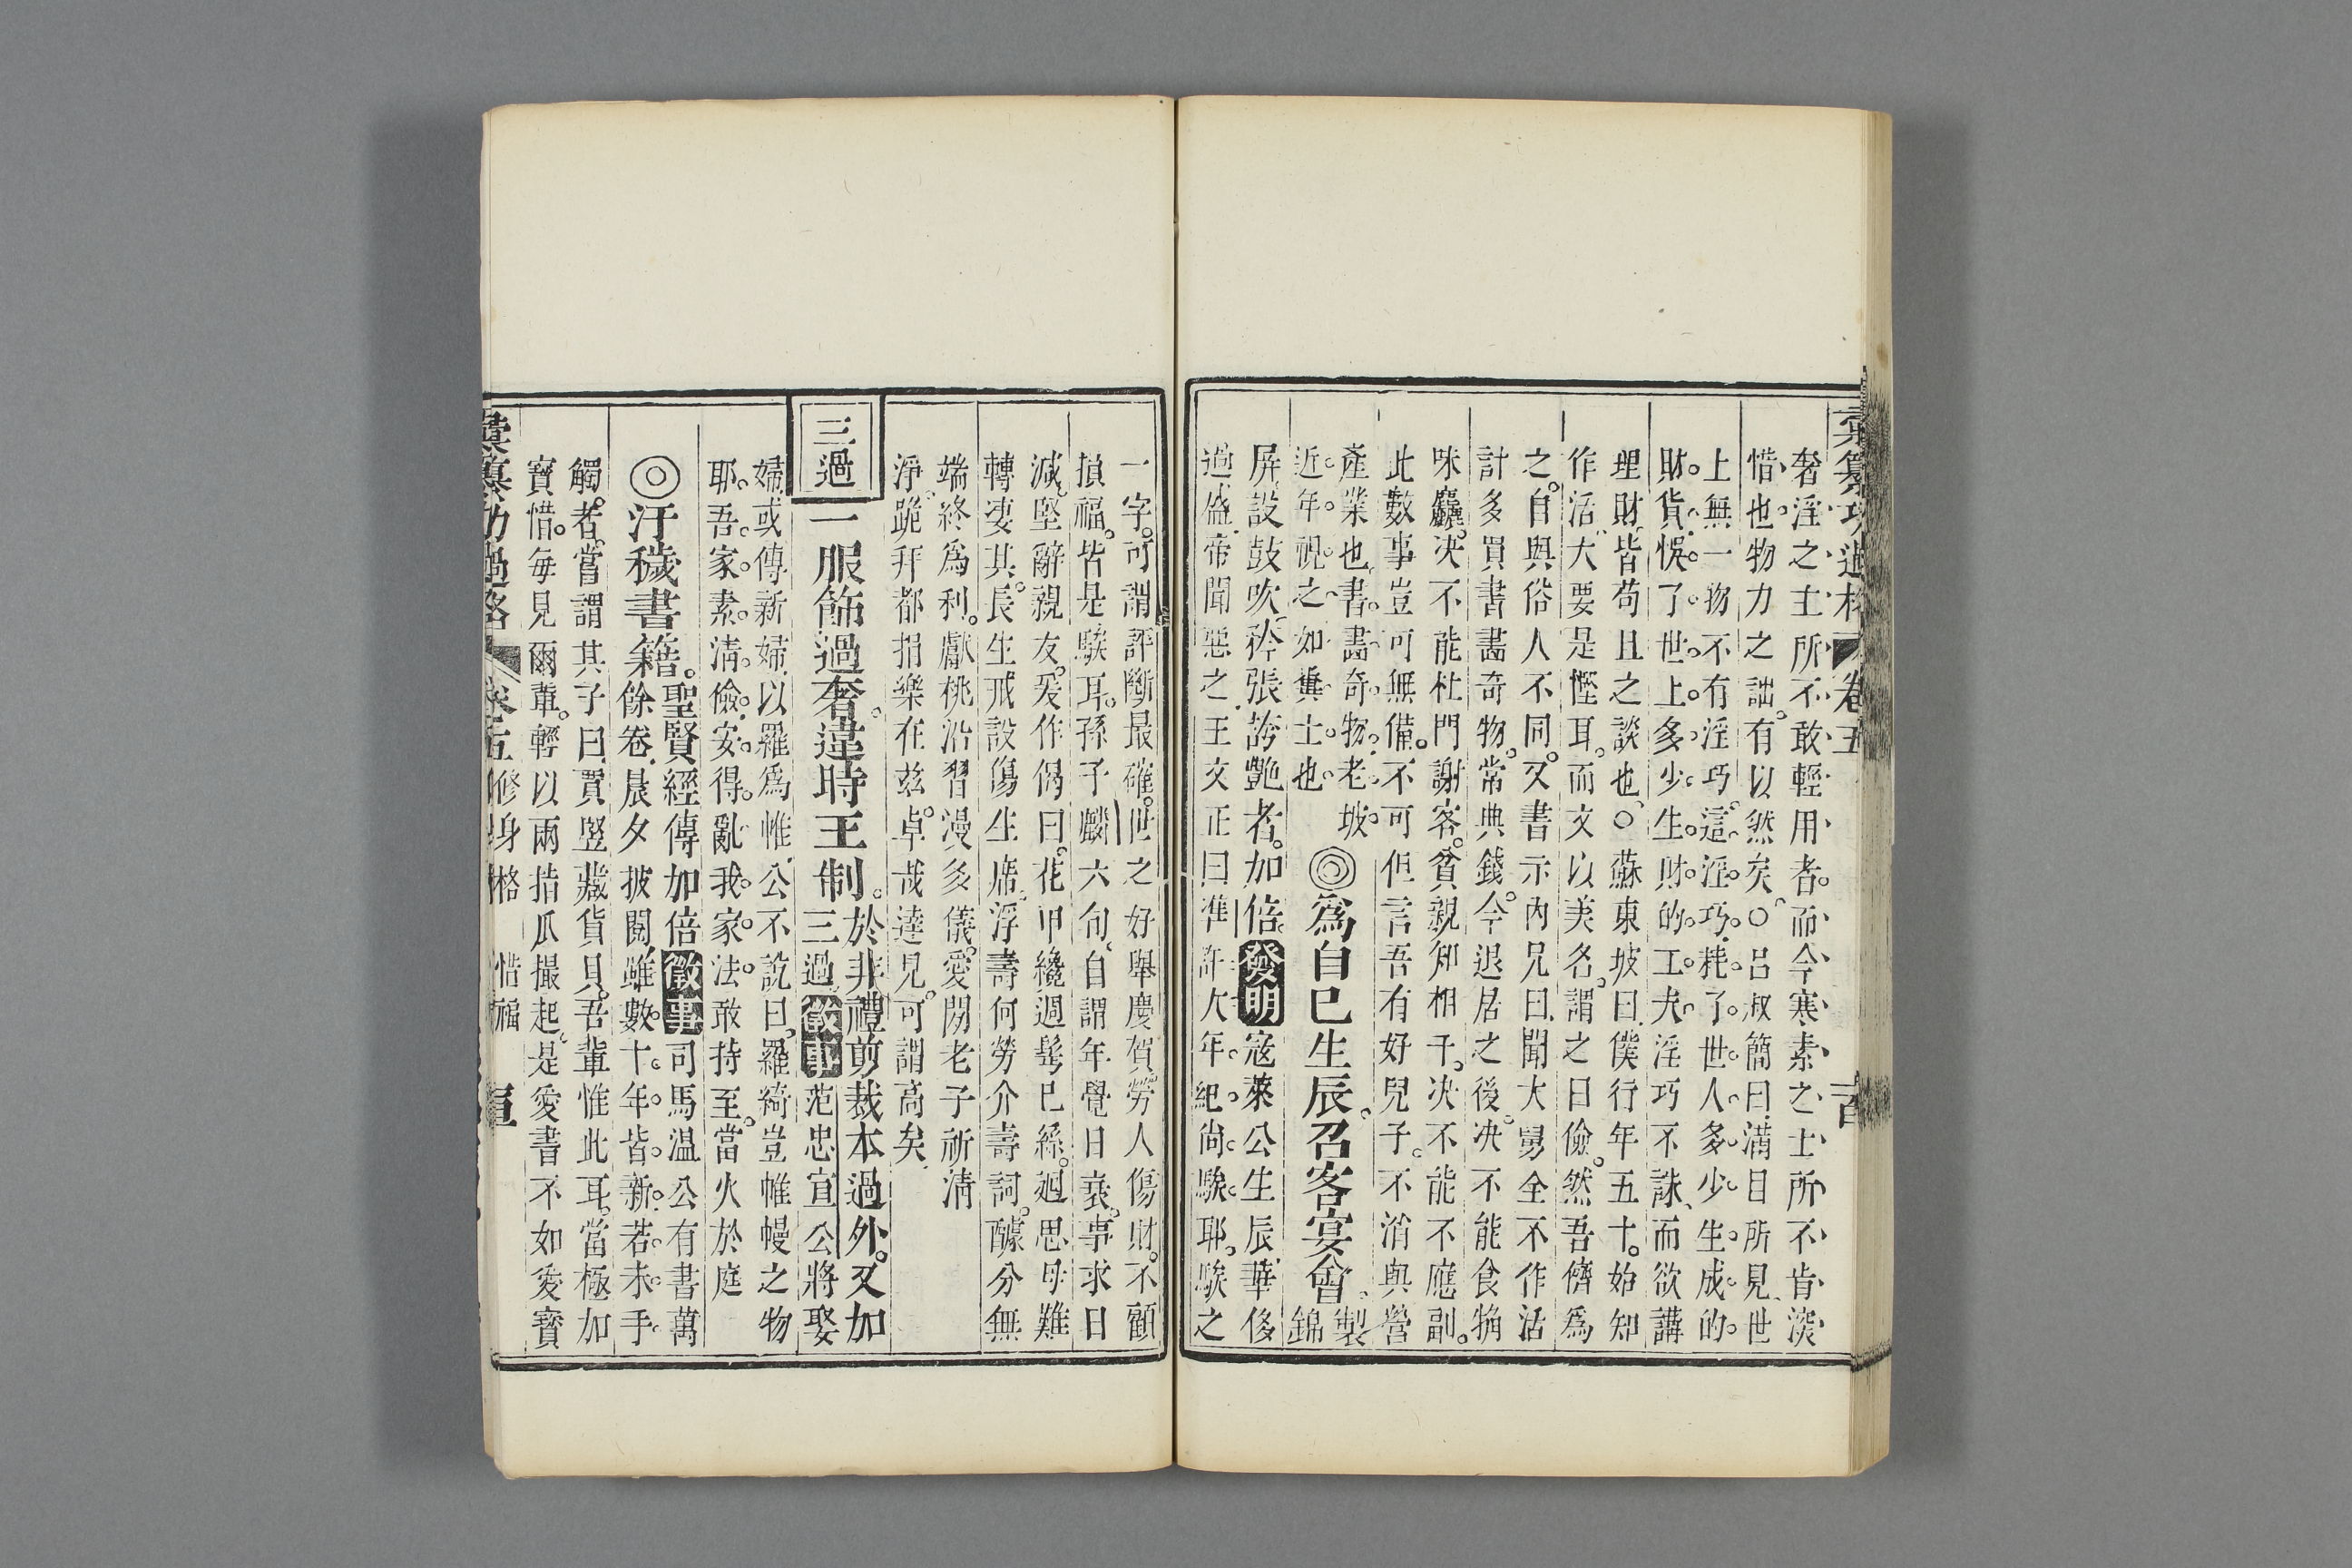 彙纂功過格 卷五
奢淫之主所不敢輕用者而今寒素之士所不肯淡
惜也物力之詘有以然矣○呂叔簡曰滿目所見世
上無一物不有淫巧這淫巧耗了世人多少生成的
財貨悞了世上多少生財的工夫淫巧不誅而欲講
理財皆苟且之談也○蘇東坡曰僕行年五十始知
作活大要是慳耳而文以美名謂之曰儉然吾儕為
之自與俗人不同又書示內兄曰聞大舅全不作活
計多買書畵奇物常典錢今退居之後决不能食觕
咪麤决不能杜門謝客貧親知相干决不能不應副
此數事豈可無備不可但言吾有好兒子不消與營
產業也書畵奇物老坡
近年視之如糞土也
◎為自己生辰召客宴會
製
錦
屏設鼓吹矜張誇艷者加倍發明寇萊公生辰華侈
過盛帝聞惡之王文正曰準許大年紀尚騃耶騃之
一字可謂評斷最確世之好舉慶賀勞人傷財不顧
損福皆是騃耳孫子麟六旬自謂年覺日衰事求日
減堅辭親友爰作偈曰花甲纔週髩已絲廻思母難
轉凄其長生戒設傷生席浮壽何勞介壽詞醵分無
端終為利獻桃沿習漫多儀愛閒老子祈清
淨跪拜都捐樂在茲卓哉達見可謂高矣
三過
一服飾過奢違時王制
於非禮剪裁本過外又加
三過徵事范忠宣公將娶
婦或傳新婦以羅為帷公不說曰羅綺豈帷幔之物
耶吾家素清儉安得亂我家法敢持至當火於庭
◎汙穢書籍
聖賢經傳加倍徵事司馬溫公有書萬
餘卷晨夕披閱雖數十年皆新若未手
觸者嘗謂其子曰賈豎藏貨貝吾輩惟此耳當極加
寶惜每見爾輩輕以兩指爪撮起是愛書不如愛寶
彙纂功過格 卷五 修身格 惜福